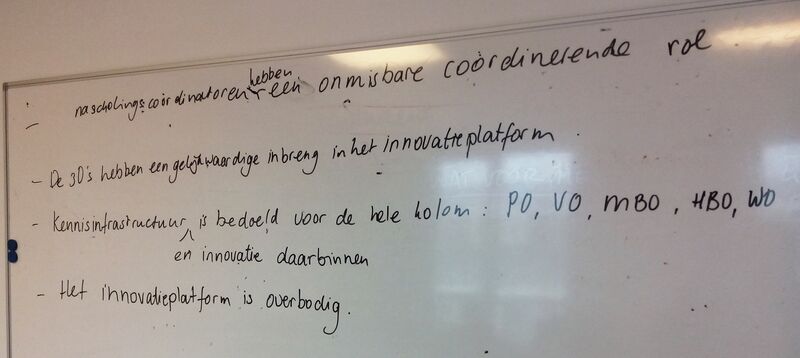 - nascholingscoördinatoren hebben een onmisbare coördinerende rol
- De 3O's hebben een gelijkwaardige inbreng in het innovatieplatform.
- Kennisinfrastructuur is bedoeld voor de hele kolom: PO, VO, MBO, HBO, WO
en innovatie daarbinnen
- Het innovatieplatform is overbodig.